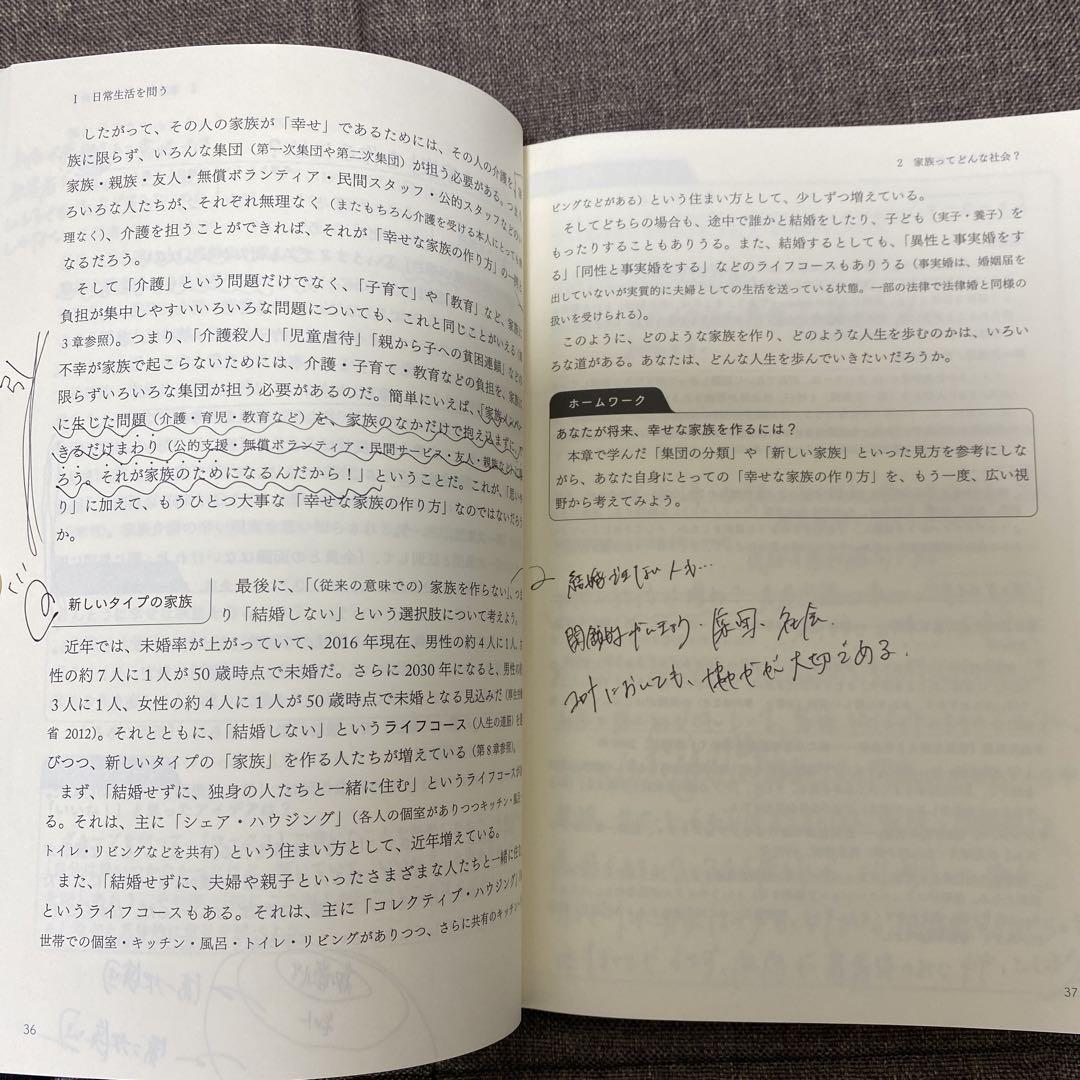 I 日常生活を問う
したがって、その人の家族が「幸せ」であるためには、その人の介護を、
族に限らず、いろんな集団(第一次集団や第二次集団)が担う必要がある。つまり
家族・親族・友人・無償ボランティア・民間スタッフ・公的スタッフなどのい
ろいろな人たちが、それぞれ無理なく(またもちろん介護を受ける本人にとっても
理なく)、介護を担うことができれば、それが「幸せな家族の作り方」の一例と
なるだろう。
そして「介護」という問題だけでなく、「子育て」や「教育」など、家族に
負担が集中しやすいいろいろな問題についても、これと同じことがいえる
3章参照)。つまり、「介護殺人」「児童虐待」「親から子への貧困連鎖」などの
不幸が家族で起こらないためには、介護・子育て・教育などの負担を、家族に
限らずいろいろな集団が担う必要があるのだ。簡単にいえば、「家族メンバー
に生じた問題(介護・育児・教育など)を、家族のなかだけで抱え込まずに、
きるだけまわり(公的支援・無償ボランティア・民間サービス・友人・親族など)に
ろう。それが家族のためになるんだから!」ということだ。これが、「思いや
り」に加えて、もうひとつ大事な「幸せな家族の作り方」なのではないだろう
か。
新しいタイプの家族
最後に、「(従来の意味での)家族を作らない」、つま
り「結婚しない」という選択肢について考えよう。
近年では、未婚率が上がっていて、2016年現在、男性の約4人に1人、
性の約7人に1人が50歳時点で未婚だ。さらに2030年になると、男性の
3人に1人、女性の約4人に1人が50歳時点で未婚となる見込みだ(厚生労働
省 2012)。それとともに、「結婚しない」というライフコース(人生の道筋)を
びつつ、新しいタイプの「家族」を作る人たちが増えている(第8章参照)。
まず、「結婚せずに、独身の人たちと一緒に住む」というライフコースが
る。それは、主に「シェア・ハウジング」(各人の個室がありつつキッチン・風呂・
トイレ・リビングなどを共有)という住まい方として、近年増えている。
また、「結婚せずに、夫婦や親子といったさまざまな人たちと一緒に住む」
というライフコースもある。それは、主に「コレクティブ・ハウジング」
世帯での個室・キッチン・風呂・トイレ・リビングがありつつ、さらに共有のキッチン・
36
2 家族ってどんな社会?
ビングなどがある)という住まい方として、少しずつ増えている。
そしてどちらの場合も、途中で誰かと結婚をしたり、子ども(実子・養子)を
もったりすることもありうる。また、結婚するとしても、「異性と事実婚をす
る」「同性と事実婚をする」などのライフコースもありうる(事実婚は、婚姻届を
出していないが実質的に夫婦としての生活を送っている状態。一部の法律で法律婚と同様の
扱いを受けられる)。
このように、どのような家族を作り、どのような人生を歩むのかは、いろい
ろな道がある。あなたは、どんな人生を歩んでいきたいだろうか。
ホームワーク
あなたが将来、幸せな家族を作るには?
本章で学んだ「集団の分類」や「新しい家族」といった見方を参考にしな
がら、あなた自身にとっての「幸せな家族の作り方」を、もう一度、広い視
野から考えてみよう。
結婚しない人も…
集団、社会.
においても、が大切である.
37